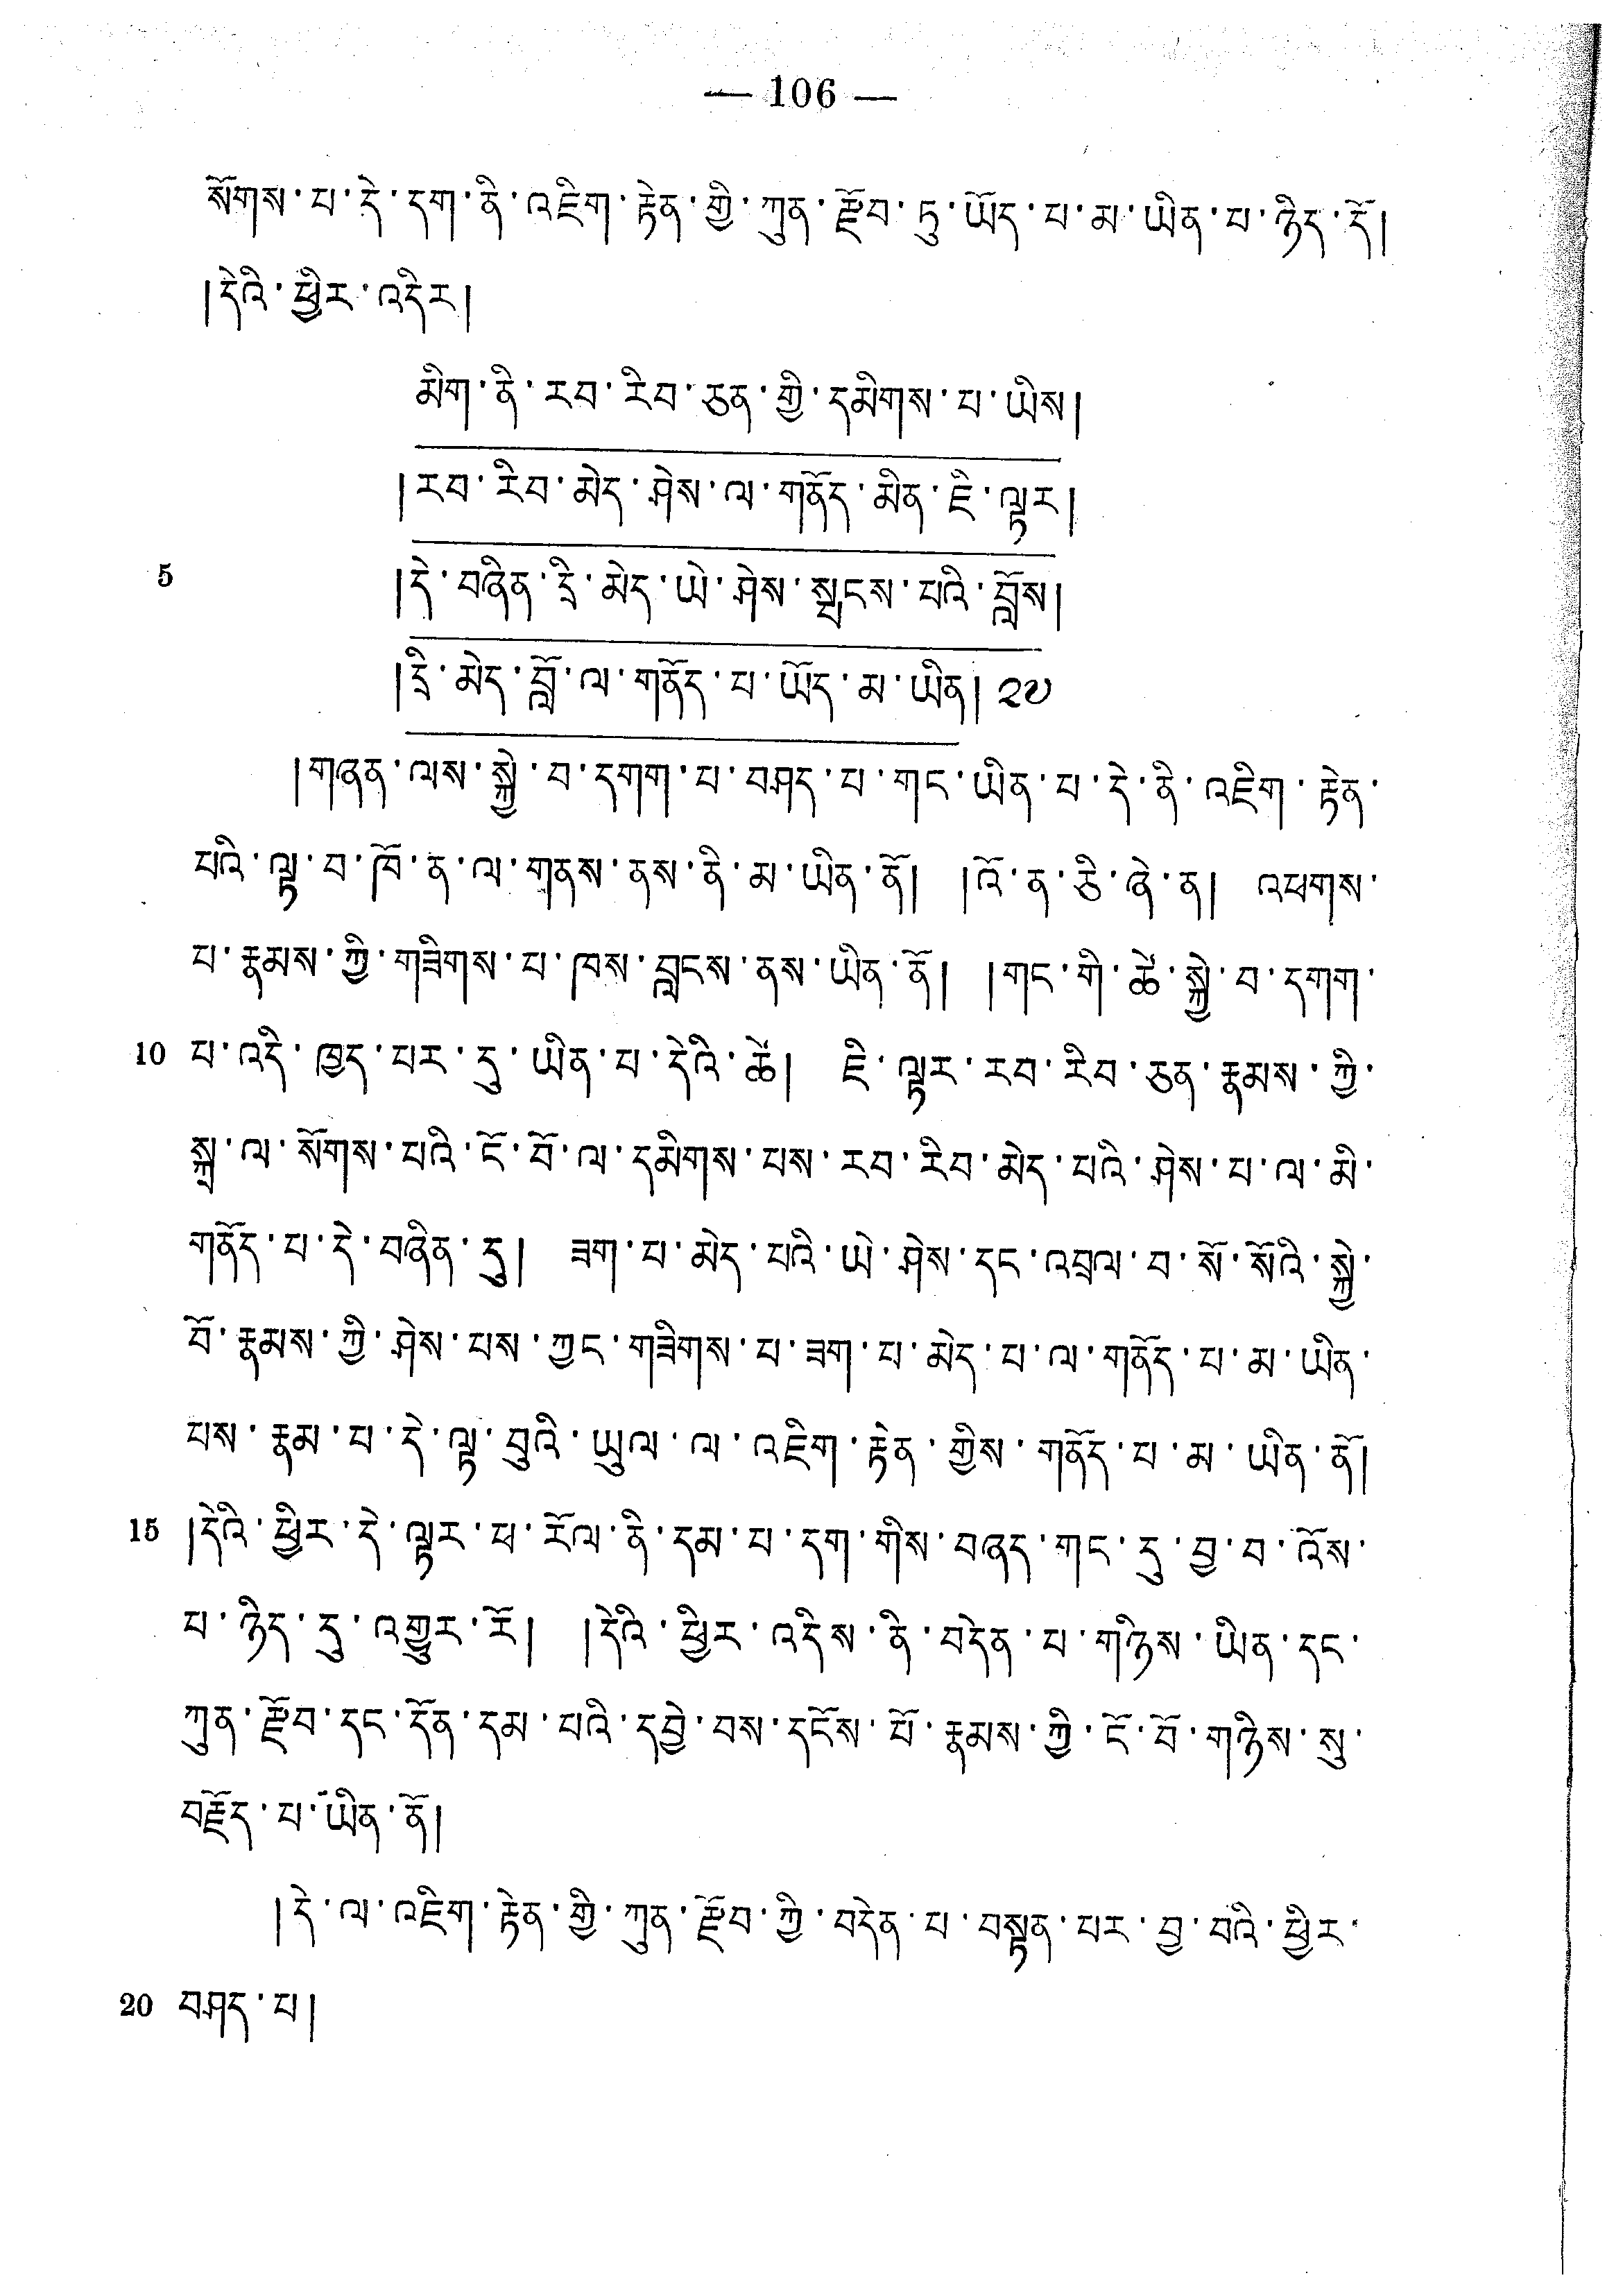 — 106 —
སོགས་པ་དེ་དག་ནི་འཇིག་རྟེན་གྱི་ཀུན་རྫོབ་ཏུ་ཡོད་པ་མ་ཡིན་པ་ཉིད་དོ།
།དེའི་ཕྱིར་འདིར།
མིག་ནི་རབ་རིབ་ཅན་གྱི་དམིགས་པ་ཡིས།
།རབ་རིབ་མེད་ཤེས་ལ་གནོད་མིན་ཇི་ལྟར།
5 །དེ་བཞིན་དྲི་མེད་ཡེ་ཤེས་སྤངས་པའི་བློས།
།དྲི་མེད་བློ་ལ་གནོད་པ་ཡོད་མ་ཡིན། ༢༧
།གཞན་ལས་སྐྱེ་བ་དགག་པ་བཤད་པ་གང་ཡིན་པ་དེ་ནི་འཇིག་རྟེན་
པའི་ལྟ་བ་ཁོ་ན་ལ་གནས་ནས་ནི་མ་ཡིན་ནོ། །འོ་ན་ཅི་ཞེ་ན། འཕགས་
པ་རྣམས་ཀྱི་གཟིགས་པ་ཁས་བླངས་ནས་ཡིན་ནོ། །གང་གི་ཚེ་སྐྱེ་བ་དགག་
10 པ་འདི་ཁྱད་པར་དུ་ཡིན་པ་དེའི་ཚེ། ཇི་ལྟར་རབ་རིབ་ཅན་རྣམས་ཀྱི་
སྐྲ་ལ་སོགས་པའི་ངོ་བོ་ལ་དམིགས་པས་རབ་རིབ་མེད་པའི་ཤེས་པ་ལ་མི་
གནོད་པ་དེ་བཞིན་དུ། ཟག་པ་མེད་པའི་ཡེ་ཤེས་དང་འབྲལ་བ་སོ་སོའི་སྐྱེ་
བོ་རྣམས་ཀྱི་ཤེས་པས་ཀྱང་གཟིགས་པ་ཟག་པ་མེད་པ་ལ་གནོད་པ་མ་ཡིན་
པས་རྣམ་པ་དེ་ལྟ་བུའི་ཡུལ་ལ་འཇིག་རྟེན་གྱིས་གནོད་པ་མ་ཡིན་ནོ།
15 །དེའི་ཕྱིར་དེ་ལྟར་ཕ་རོལ་ནི་དམ་པ་དག་གིས་བཞད་གང་དུ་བྱ་བ་འོས་
པ་ཉིད་དུ་འགྱུར་རོ། །དེའི་ཕྱིར་འདིས་ནི་བདེན་པ་གཉིས་ཡིན་དང་
ཀུན་རྫོབ་དང་དོན་དམ་པའི་དབྱེ་བས་དངོས་པོ་རྣམས་ཀྱི་ངོ་བོ་གཉིས་སུ་
བརྗོད་པ་ཡིན་ནོ།
།དེ་ལ་འཇིག་རྟེན་གྱི་ཀུན་རྫོབ་ཀྱི་བདེན་པ་བསྟན་པར་བྱ་བའི་ཕྱིར་
20 བཤད་པ།